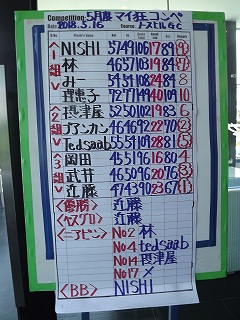 Competition: 5月度 マイ狂コンペ
2018.5.16 Course:
NISHI 57 49 106 17 89 ⑨
林 46 57 103 19 84 ⑦
みー 54 54 108 24 84 8
理恵子 72 77 149 40 109 10
摂津屋 52 50 102 19 83 6
コアンカン 46 46 92 22 70 ②
Tedsaab 55 54 109 28 81 ⑤
岡田 45 51 96 16 80 4
武井 46 50 96 20 76 ③
近藤 47 43 90 23 67 ①
<優勝> 近藤
<ベスグロ> 近藤
<ニアピン> No2 林
No4 tedsaab
No14 摂津屋
No17 〆
<BB> NISHI